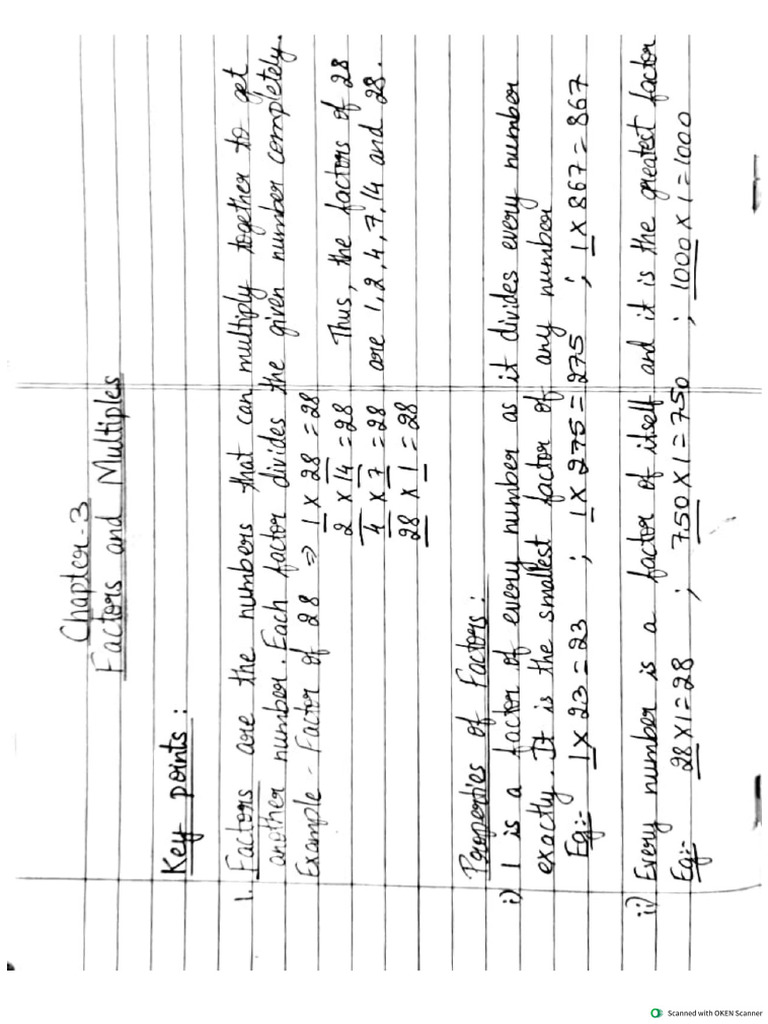 Chapter-3
Factors and Multiples
Key points :
1. Factors are the numbers that can multiply together to get
another number. Each factor divides the given number completely.
Example - Factor of 28 ⇒ 1 × 28 = 28 Thus, the factors of 28
2 × 14 = 28 are 1, 2, 4, 7, 14 and 28.
4 × 7 = 28
28 × 1 = 28
Properties of Factors :
i) 1 is a factor of every number as it divides every number
exactly. It is the smallest factor of any number
Eg:- 1 × 23 = 23 ; 1 × 275 = 275 ; 1 × 867 = 867
ii) Every number is a factor of itself and it is the greatest factor
Eg:- 28 × 1 = 28 ; 750 × 1 = 750 ; 1000 × 1 = 1000
Scanned with OKEN Scanner